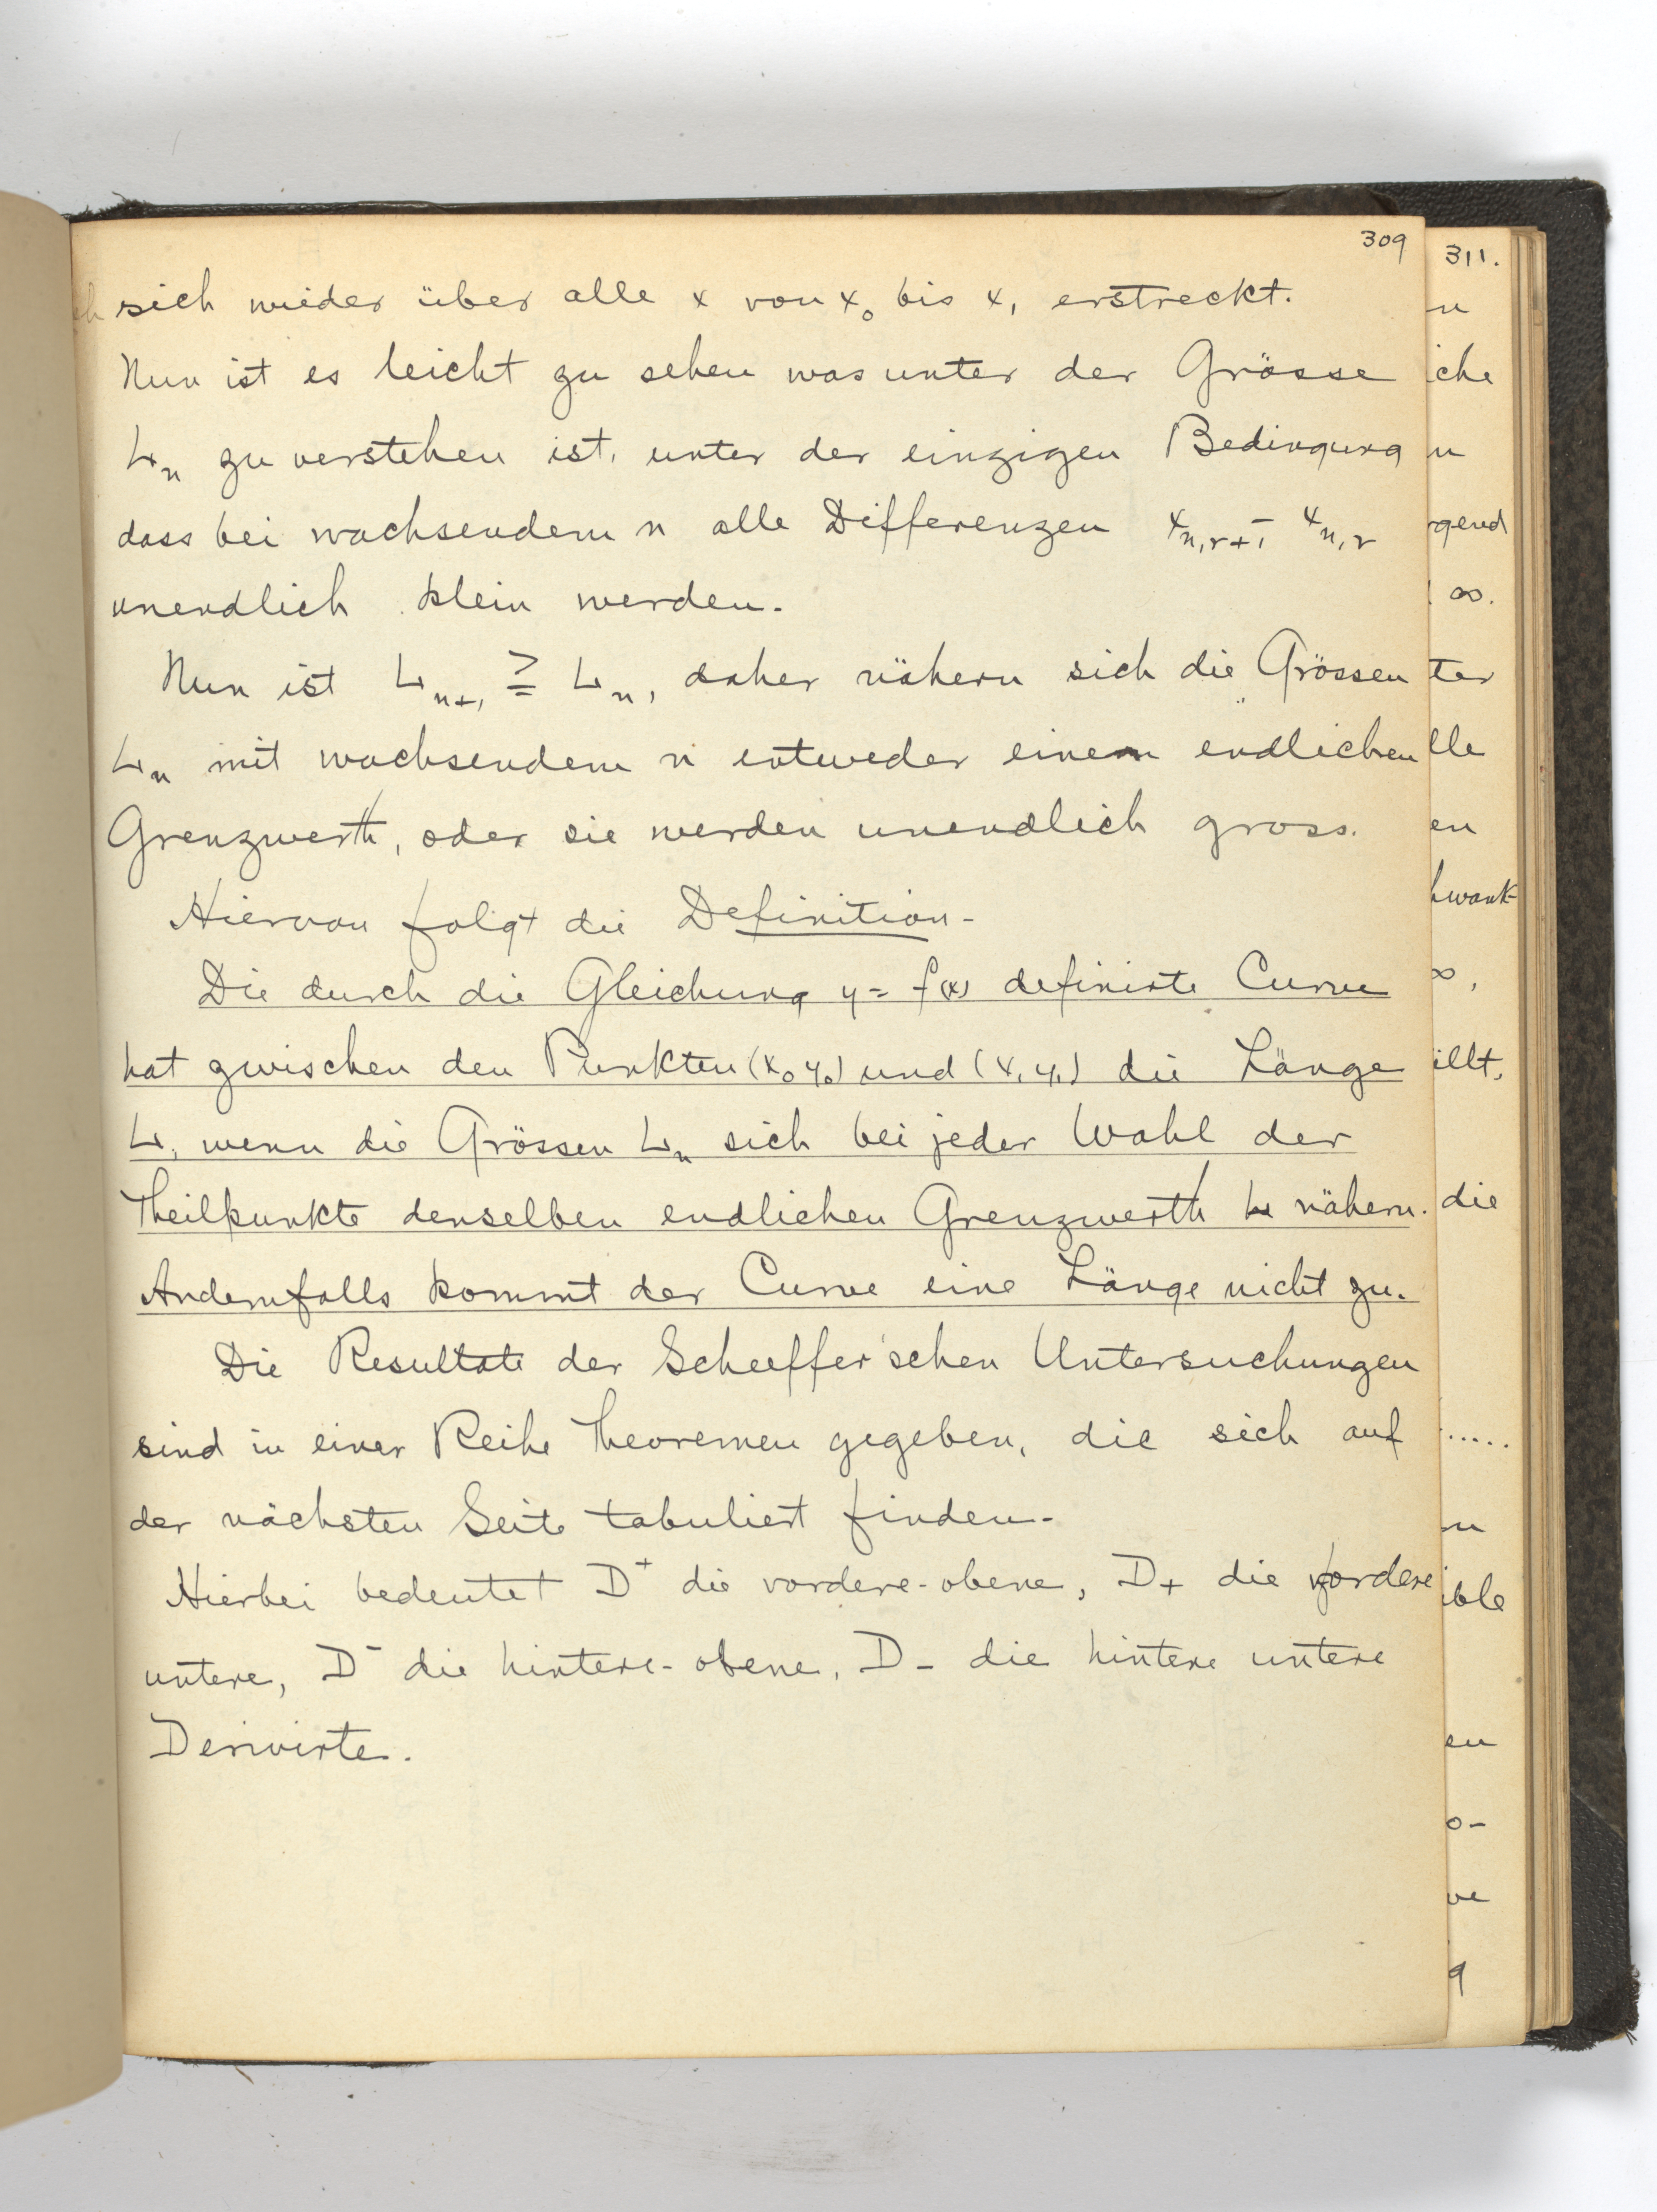 309
sich wieder über alle x von x₀ bis x₁ erstreckt.
Nun ist es leicht zu sehen was unter der Grösse
Lₙ zu verstehen ist, unter der einzigen Bedingung
dass bei wachsendem n alle Differenzen xₙ,ᵣ₊₁ - xₙ,ᵣ
unendlich klein werden.
Nun ist Lₙ₊₁ ≧ Lₙ, daher nähern sich die Grössen
Lₙ mit wachsendem n entweder einem endlichen
Grenzwerth, oder sie werden unendlich gross.
Hiervon folgt die Definition-
Die durch die Gleichung y = f(x) definirte Curve
hat zwischen den Punkten (x₀ y₀) und (x₁ y₁) die Länge
L, wenn die Grössen Lₙ sich bei jeder Wahl der
Theilpunkte denselben endlichen Grenzwerth L nähern.
Andernfalls kommt der Curve eine Länge nicht zu.
Die Resultate der Scheeffer'schen Untersuchungen
sind in einer Reihe Theoremen gegeben, die sich auf
der nächsten Seite tabuliert finden-
Hierbei bedeutet D⁺ die vordere-obene, D₊ die vordere
untere, D⁻ die hintere-obene, D₋ die hintere untere
Derivirte.
311.
n
iche
n
rgend
∞.
ter
lle
en
hwank-
∞,
illt,
die
.....
en
o-
ve
g